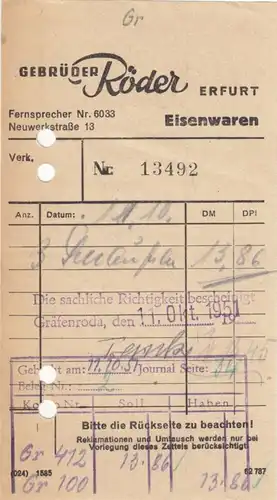 Gr
GEBRÜDER Röder ERFURT
Fernsprecher Nr. 6033
Neuwerkstraße 13
Eisenwaren
Verk.
Nr. 13492
Anz. Datum: 10. DM DPf
3 13,86
Die sachliche Richtigkeit bescheinigt
Gräfenroda, den 11. Okt. 1951
Gebucht am: 11.10.51 Journal Seite: 14
Beleg Nr.:
Konto Nr. Soll Haben
Bitte die Rückseite zu beachten!
Reklamationen und Umtausch werden nur bei
Vorlegung dieses Zettels berücksichtigt
(024) 1585
Gr 412 13.86
Gr 100 13.86